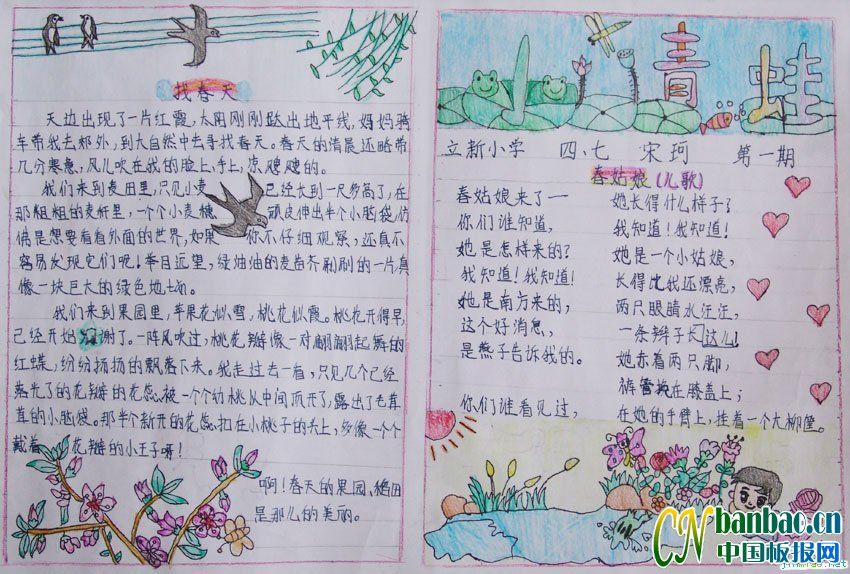 找春天
天边出现了一片红霞,太阳刚刚跃出地平线,妈妈骑
车带我去郊外,到大自然中去寻找春天。春天的清晨还略带
几分寒意,风儿吹在我的脸上、手上,凉飕飕的。
我们来到麦田里,只见小麦已经长到一尺多高了,在
那粗粗的麦杆里,一个个小麦穗顽皮伸出半个小脑袋,仿
偶是想要看看外面的世界,如果你不仔细观察,还真不
容易发现它们呢!举目远望,绿油油的麦苗齐刷刷的一片,真
像一块巨大的绿色地毯。
我们来到果园里,苹果花似雪,桃花似霞。桃花开得早,
已经开始凋谢了。一阵风吹过,桃花瓣像一对对翩翩起舞的
红蝶,纷纷扬扬的飘落下来。我走过去一看,只见几个已经
落光了的花瓣的花蕊,被一个个幼桃从中间顶开了,露出了毛茸
茸的小脑袋。那半个新开的花蕊扣在小桃子的头上,多像一个个
戴着花瓣的小王子呀!
啊!春天的果园、稻田
是那儿的美丽。
小青蛙
立新小学 四、七 宋珂 第一期
春姑娘(儿歌)
春姑娘来了一
你们谁知道,
她是怎样来的?
我知道!我知道!
她是南方来的,
这个好消息,
是燕子告诉我的。
你们谁看见过,
她长得什么样子?
我知道!我知道!
她是一个小姑娘,
长得比我还漂亮,
两只眼睛水汪汪,
一条辫子长这儿!
她赤着两只脚,
裤管挽在膝盖上;
在她的手臂上,挂着一个大柳筐。
CN banbao.cn
中国板报网
jinmiao.net